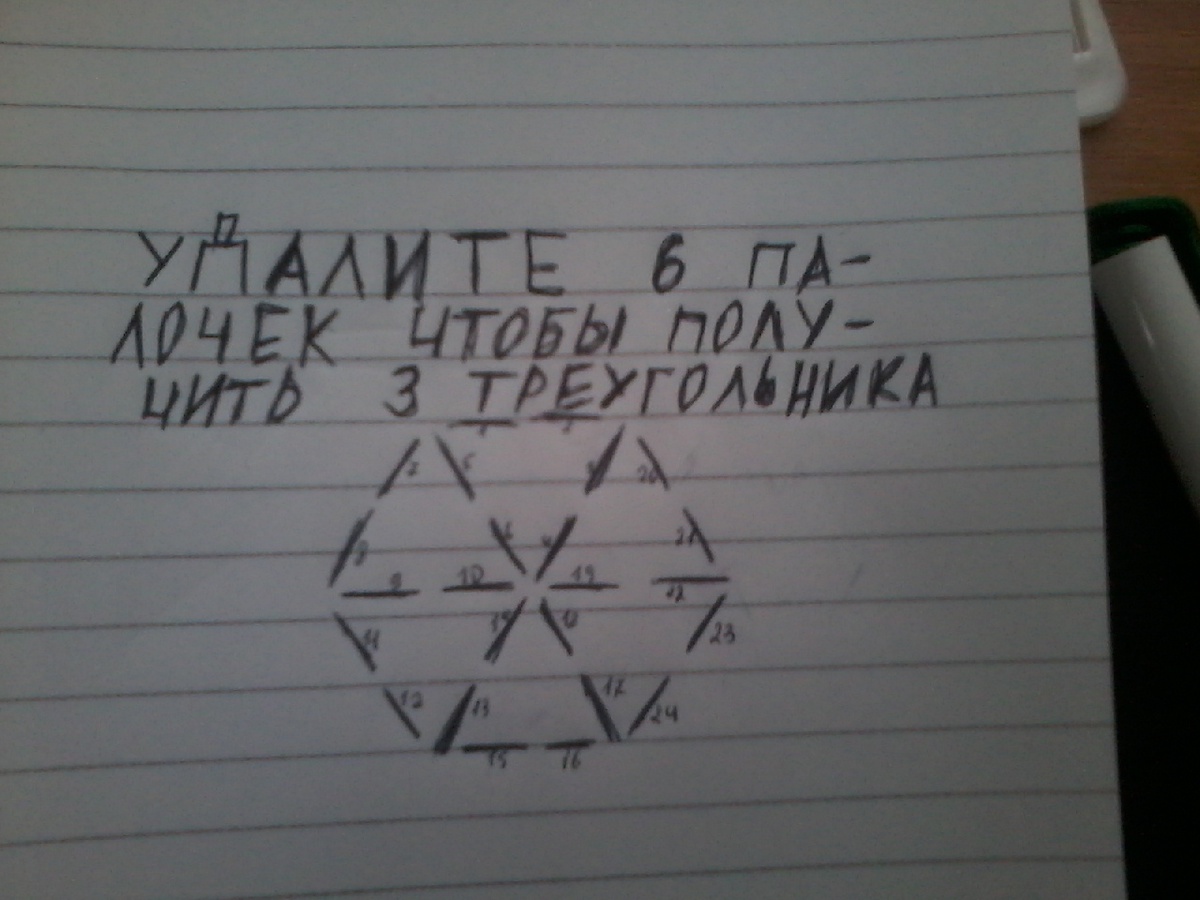 УДАЛИТЕ 6 ПА-
ЛОЧЕК ЧТОБЫ ПОЛУ-
ЧИТЬ 3 ТРЕУГОЛЬНИКА
20
10 19
11 18 23
12 13 17 24
15 16